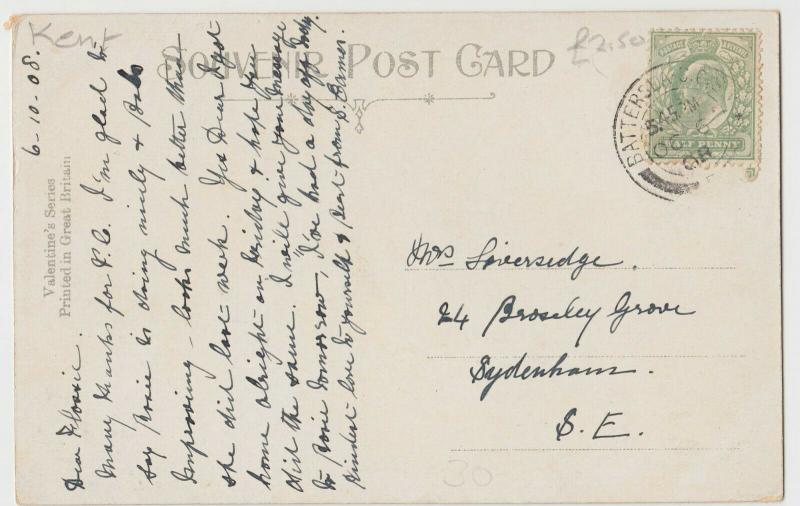 Kent
£2.50
SOUVENIR POST CARD
BATTERSEA S.O.
8.45 PM
OC 6
08
HALF PENNY
Valentine's Series
Printed in Great Britain
6-10-08.
Dear Flossie.
Many thanks for P.C. I'm glad to
say Rosie is doing nicely & Babs
Improving - looks much better than
she did last week. Yes Dear I got
home alright on Friday & hope you
did the same. I will give your message
to Rosie tomorrow, I've had a day off today.
Kindest love to yourself & Bert from S.
Mrs Liversedge.
24 Broseley Grove
Sydenham.
S.E.
30